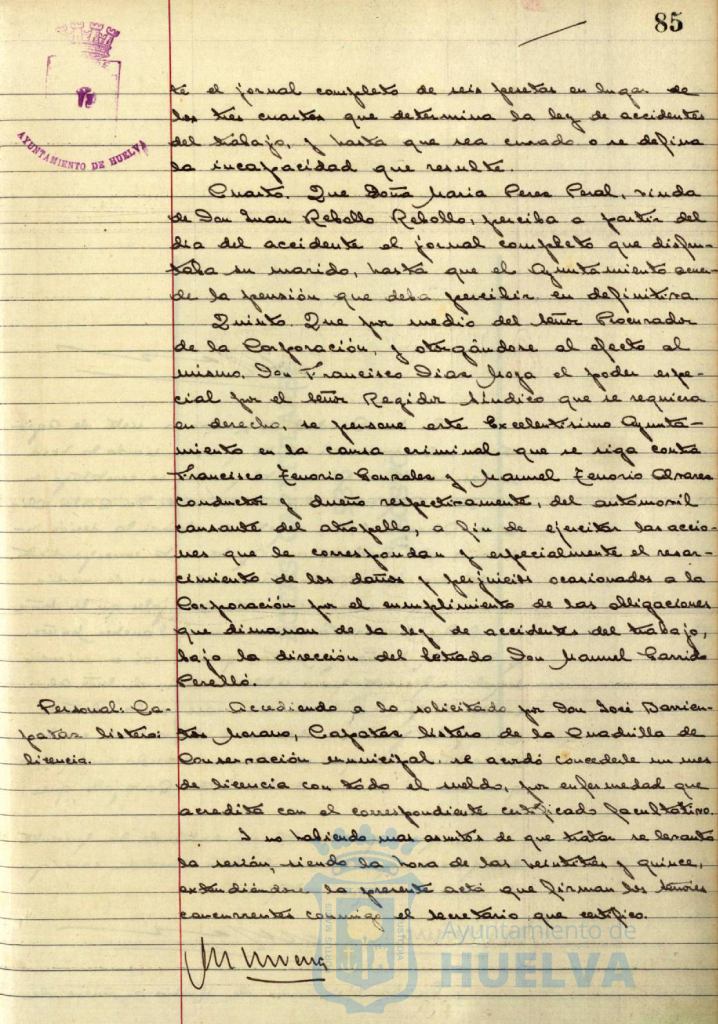 85
AYUNTAMIENTO DE HUELVA
te el jornal completo de seis pesetas en lugar de
los tres cuartos que determina la ley de accidentes
del trabajo, y hasta que sea curado o se defina
la incapacidad que resulte.
Cuarto. Que Doña Maria Perez Peral, viuda
de Don Juan Rebollo Rebollo, perciba a partir del
dia del accidente el jornal completo que disfru-
taba su marido, hasta que el Ayuntamiento acuer-
de la pensión que deba percibir en definitiva.
Quinto. Que por medio del Señor Procurador
de la Corporación, y otorgándose al efecto al
mismo, Don Francisco Diaz Moya el poder espe-
cial por el Señor Regidor Sindico que se requiera
en derecho, se persone este Excelentísimo Ayunta-
miento en la causa criminal que se siga contra
Francisco Tenorio Gonzalez y Manuel Tenorio Alvarez
conductor y dueño respectivamente, del automovil
causante del atropello, a fin de ejercitar las accio-
nes que le correspondan y especialmente el resar-
cimiento de los daños y perjuicios ocasionados a la
Corporación por el cumplimiento de las obligaciones
que dimanan de la ley de accidentes del trabajo,
bajo la dirección del Letrado Don Manuel Garrido
Perelló.
Personal: Ca-
pataz listero:
licencia.
Accediendo a lo solicitado por Don José Barrien-
tos Morano, Capataz listero de la Cuadrilla de
Conservación municipal, se acordó concederle un mes
de licencia con todo el sueldo, por enfermedad que
acredita con el correspondiente certificado facultativo.
Y no habiendo mas asuntos de que tratar se levantó
la sesión, siendo la hora de las veintitres y quince,
extendiéndose la presente acta que firman los señores
concurrentes conmigo el Secretario que certifico.
Ayuntamiento de
HUELVA